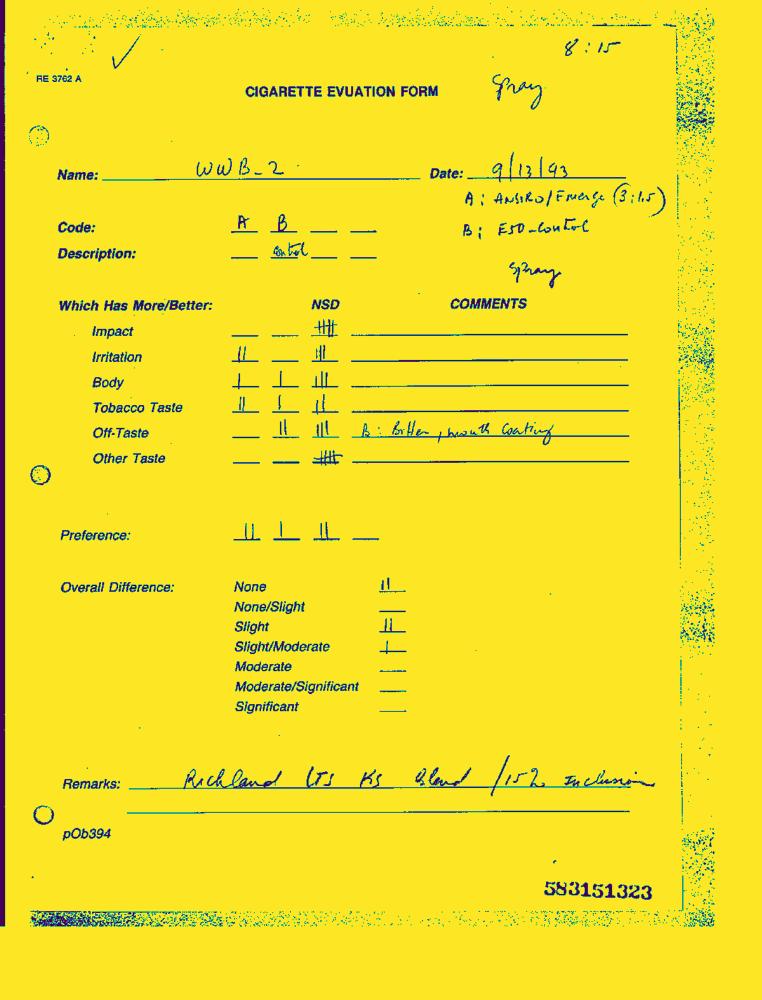 8:15
RE 3762 A
CIGARETTE EVUATION FORM
Spray
Name: WWB-2 Date: 9/13/93
A: /Emerge (3:1.5)
Code: A B
B: ESD-Control
Description: Control
Spray
Which Has More/Better: NSD COMMENTS
Impact
Irritation || |||
Body | | |||
Tobacco Taste || | ||
Off-Taste || ||| B: Bitter, mouth Coating
Other Taste
Preference: || | ||
Overall Difference: None ||
None/Slight
Slight ||
Slight/Moderate |
Moderate
Moderate/Significant
Significant
Remarks: Richland LTS KS Blend /15% Inclusion
pOb394
583151323